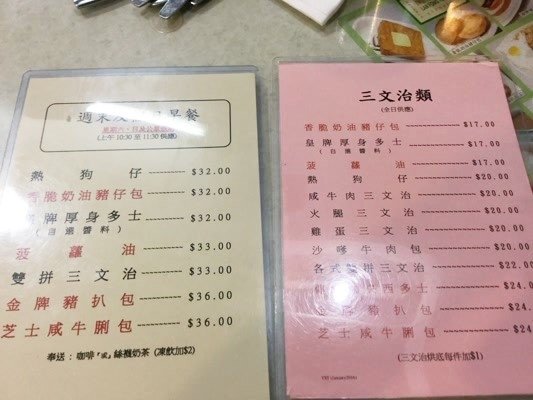 週末及 早餐
星期六、日及公眾假期
(上午 10:30 至 11:30 供應)
熱狗仔 $32.00
香脆奶油豬仔包 $32.00
皇牌厚身多士 $32.00
(自選醬料)
菠蘿油 $33.00
雙拼三文治 $33.00
金牌豬扒包 $36.00
芝士咸牛脷包 $36.00
奉送：咖啡『或』絲襪奶茶 (凍飲加$2)
三文治類
(全日供應)
香脆奶油豬仔包 $17.00
皇牌厚身多士 $17.00
(自選醬料)
菠蘿油 $17.00
熱狗仔 $20.00
咸牛肉三文治 $20.00
火腿三文治 $20.00
雞蛋三文治 $20.00
沙嗲牛肉包 $20.00
各式雙拼三文治 $22.00
西多士 $24.
金牌豬扒包 $24.
芝士咸牛脷包 $24
(三文治烘底每件加$1)